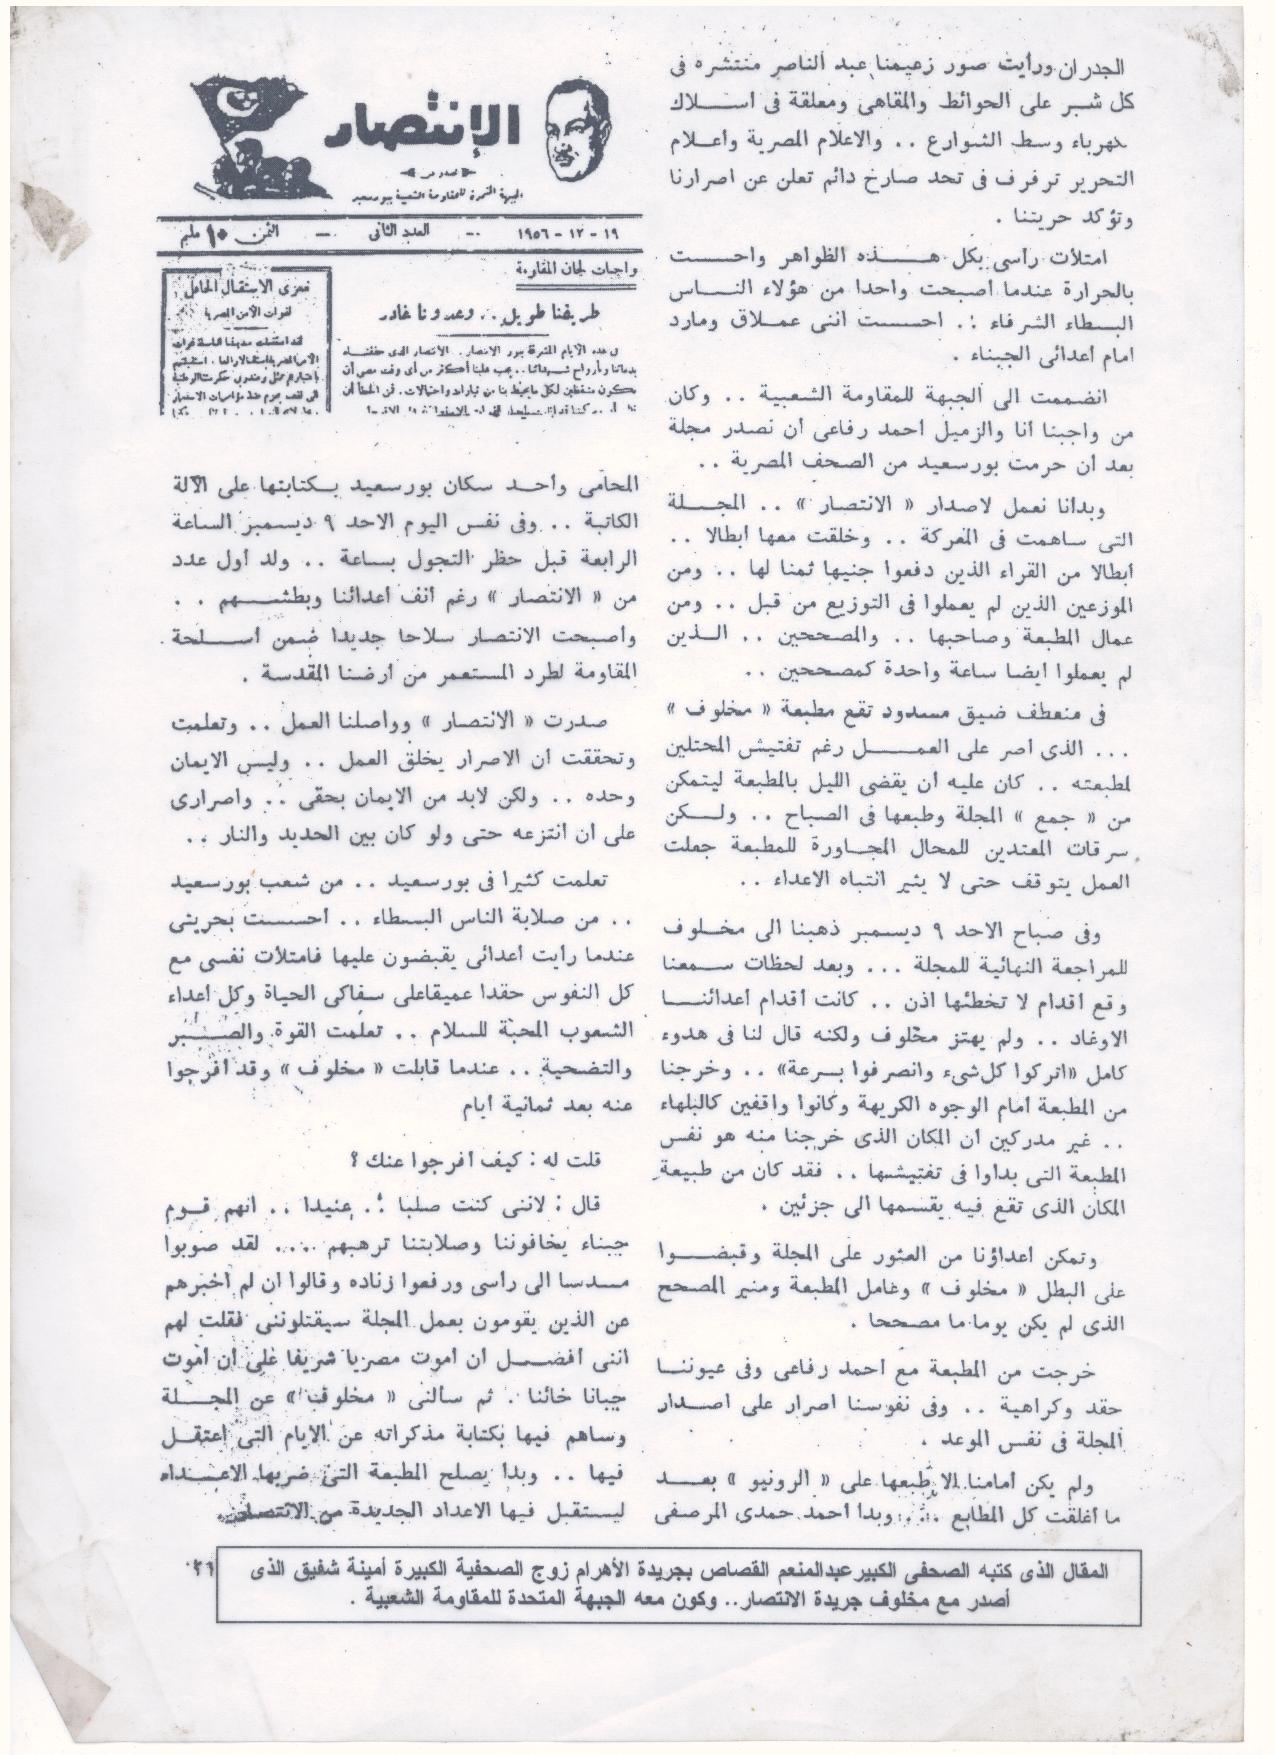 الجدران ورأيت صور زعيمنا عبد الناصر منتشره فى
كل شبر على الحوائط والمقاهى ومعلقة فى اسلاك
كهرباء وسط الشوارع .. والاعلام المصرية واعلام
التحرير ترفرف فى تحد صارخ دائم تعلن عن اصرارنا
وتؤكد حريتنا .
امتلأت رأسى بكل هذه الظواهر واحست
بالحرارة عندما أصبحت واحدا من هؤلاء الناس
البسطاء الشرفاء .. احسست اننى عملاق ومارد
امام أعدائى الجبناء .
انضممت الى الجبهة للمقاومة الشعبية .. وكان
من واجبنا أنا والزميل احمد رفاعى ان نصدر مجلة
بعد ان حرمت بورسعيد من الصحف المصرية ..
وبدأنا نعمل لاصدار « الانتصار » .. المجلة
التى ساهمت فى المعركة .. وخلقت معها ابطالا ..
ابطالا من القراء الذين دفعوا جنيها ثمنا لها .. ومن
الموزعين الذين لم يعملوا فى التوزيع من قبل .. ومن
عمال المطبعة وصاحبها .. والمصححين .. الذين
لم يعملوا ايضا ساعة واحدة كمصححين ..
فى منعطف ضيق مسدود تقع مطبعة « مخلوف »
... الذى اصر على العمل رغم تفتيش المحتلين
لمطبعته .. كان عليه ان يقضى الليل بالمطبعة ليتمكن
من « جمع » المجلة وطبعها فى الصباح .. ولكن
سرقات المعتدين للمحال المجاورة للمطبعة جعلت
العمل يتوقف حتى لا يثير انتباه الاعداء ..
وفى صباح الاحد ٩ ديسمبر ذهبنا الى مخلوف
للمراجعة النهائية للمجلة ... وبعد لحظات سمعنا
وقع أقدام لا تخطئها اذن .. كانت أقدام أعدائنا
الاوغاد .. ولم يهتز مخلوف ولكنه قال لنا فى هدوء
كامل «اتركوا كل شىء وانصرفوا بسرعة» .. وخرجنا
من المطبعة أمام الوجوه الكريهة وكانوا واقفين كالبلهاء
.. غير مدركين ان المكان الذى خرجنا منه هو نفس
المطبعة التى بدأوا فى تفتيشها .. فقد كان من طبيعة
المكان الذى تقع فيه يقسمها الى جزئين .
وتمكن أعداؤنا من العثور على المجلة وقبضوا
على البطل « مخلوف » وعامل المطبعة ومنير المصحح
الذى لم يكن يوما ما مصححا .
خرجت من المطبعة مع احمد رفاعى وفى عيوننا
حقد وكراهية .. وفى نفوسنا اصرار على اصدار
المجلة فى نفس الموعد .
ولم يكن أمامنا الا طبعها على « الرونيو » بعد
ما أغلقت كل المطابع ... وبدأ احمد حمدى المرصفى
الإنتصار
تصدر عن
الجبهة المتحدة للمقاومة الشعبية ببورسعيد
١٩ - ١٢ - ١٩٥٦ -- العدد الثانى -- الثمن ١٠ مليم
واجبات لجان المقاومة
طريقنا طويل .. وعدونا غادر
مغزى الاستقبال الحافل
لقوات الأمن المصرية
المحامى وأحد سكان بورسعيد بكتابتها على الآلة
الكاتبة .. وفى نفس اليوم الاحد ٩ ديسمبر الساعة
الرابعة قبل حظر التجول بساعة .. ولد أول عدد
من « الانتصار » رغم أنف أعدائنا وبطشهم . .
وأصبحت الانتصار سلاحا جديدا ضمن أسلحة
المقاومة لطرد المستعمر من أرضنا المقدسة .
صدرت « الانتصار » وواصلنا العمل .. وتعلمت
وتحققت ان الاصرار يخلق العمل .. وليس الايمان
وحده .. ولكن لابد من الايمان بحقى .. واصرارى
على ان انتزعه حتى ولو كان بين الحديد والنار ..
تعلمت كثيرا فى بورسعيد .. من شعب بورسعيد
.. من صلابة الناس البسطاء .. احسست بحريتى
عندما رأيت أعدائى يقبضون عليها فامتلأت نفسى مع
كل النفوس حقدا عميقا على سفاكى الحياة وكل اعداء
الشعوب المحبة للسلام .. تعلمت القوة والصبر
والتضحية .. عندما قابلت « مخلوف » وقد أفرجوا
عنه بعد ثمانية أيام
قلت له : كيف أفرجوا عنك ؟
قال : لاننى كنت صلبا .. عنيدا .. انهم قوم
جبناء يخافوننا وصلابتنا ترهبهم .... لقد صوبوا
مسدسا الى رأسى ورفعوا زناده وقالوا ان لم أخبرهم
عن الذين يقومون بعمل المجلة سيقتلوننى فقلت لهم
اننى أفضل ان أموت مصريا شريفا على ان أموت
جبانا خائنا . ثم سألنى « مخلوف » عن المجلة
وساهم فيها بكتابة مذكراته عن الايام التى اعتقل
فيها .. وبدأ يصلح المطبعة التى ضربها الاعداء
ليستقبل فيها الاعداد الجديدة من الانتصار
المقال الذى كتبه الصحفى الكبير عبدالمنعم القصاص بجريدة الأهرام زوج الصحفية الكبيرة أمينة شفيق الذى
أصدر مع مخلوف جريدة الانتصار.. وكون معه الجبهة المتحدة للمقاومة الشعبية .